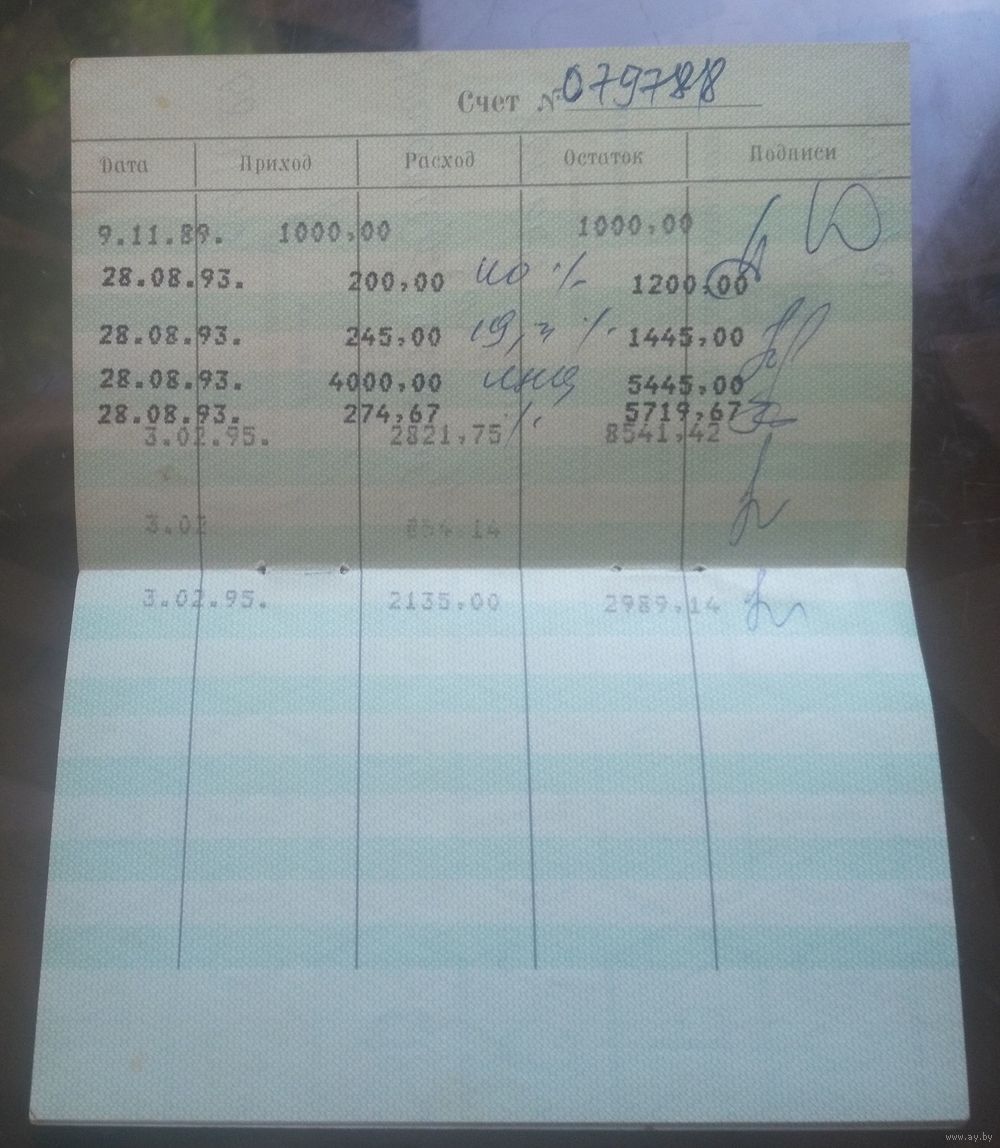 Счет № 079788
Дата Приход Расход Остаток Подписи
9.11.89. 1000,00 1000,00
28.08.93. 200,00 % 1200,00
28.08.93. 245,00 % 1445,00
28.08.93. 4000,00 5445,00
28.08.93. 274,67 5719,67
3.02.95. 2821,75 % 8541,42
3.02 854.14
3.02.95. 2135,00 2989,14
www.ay.by